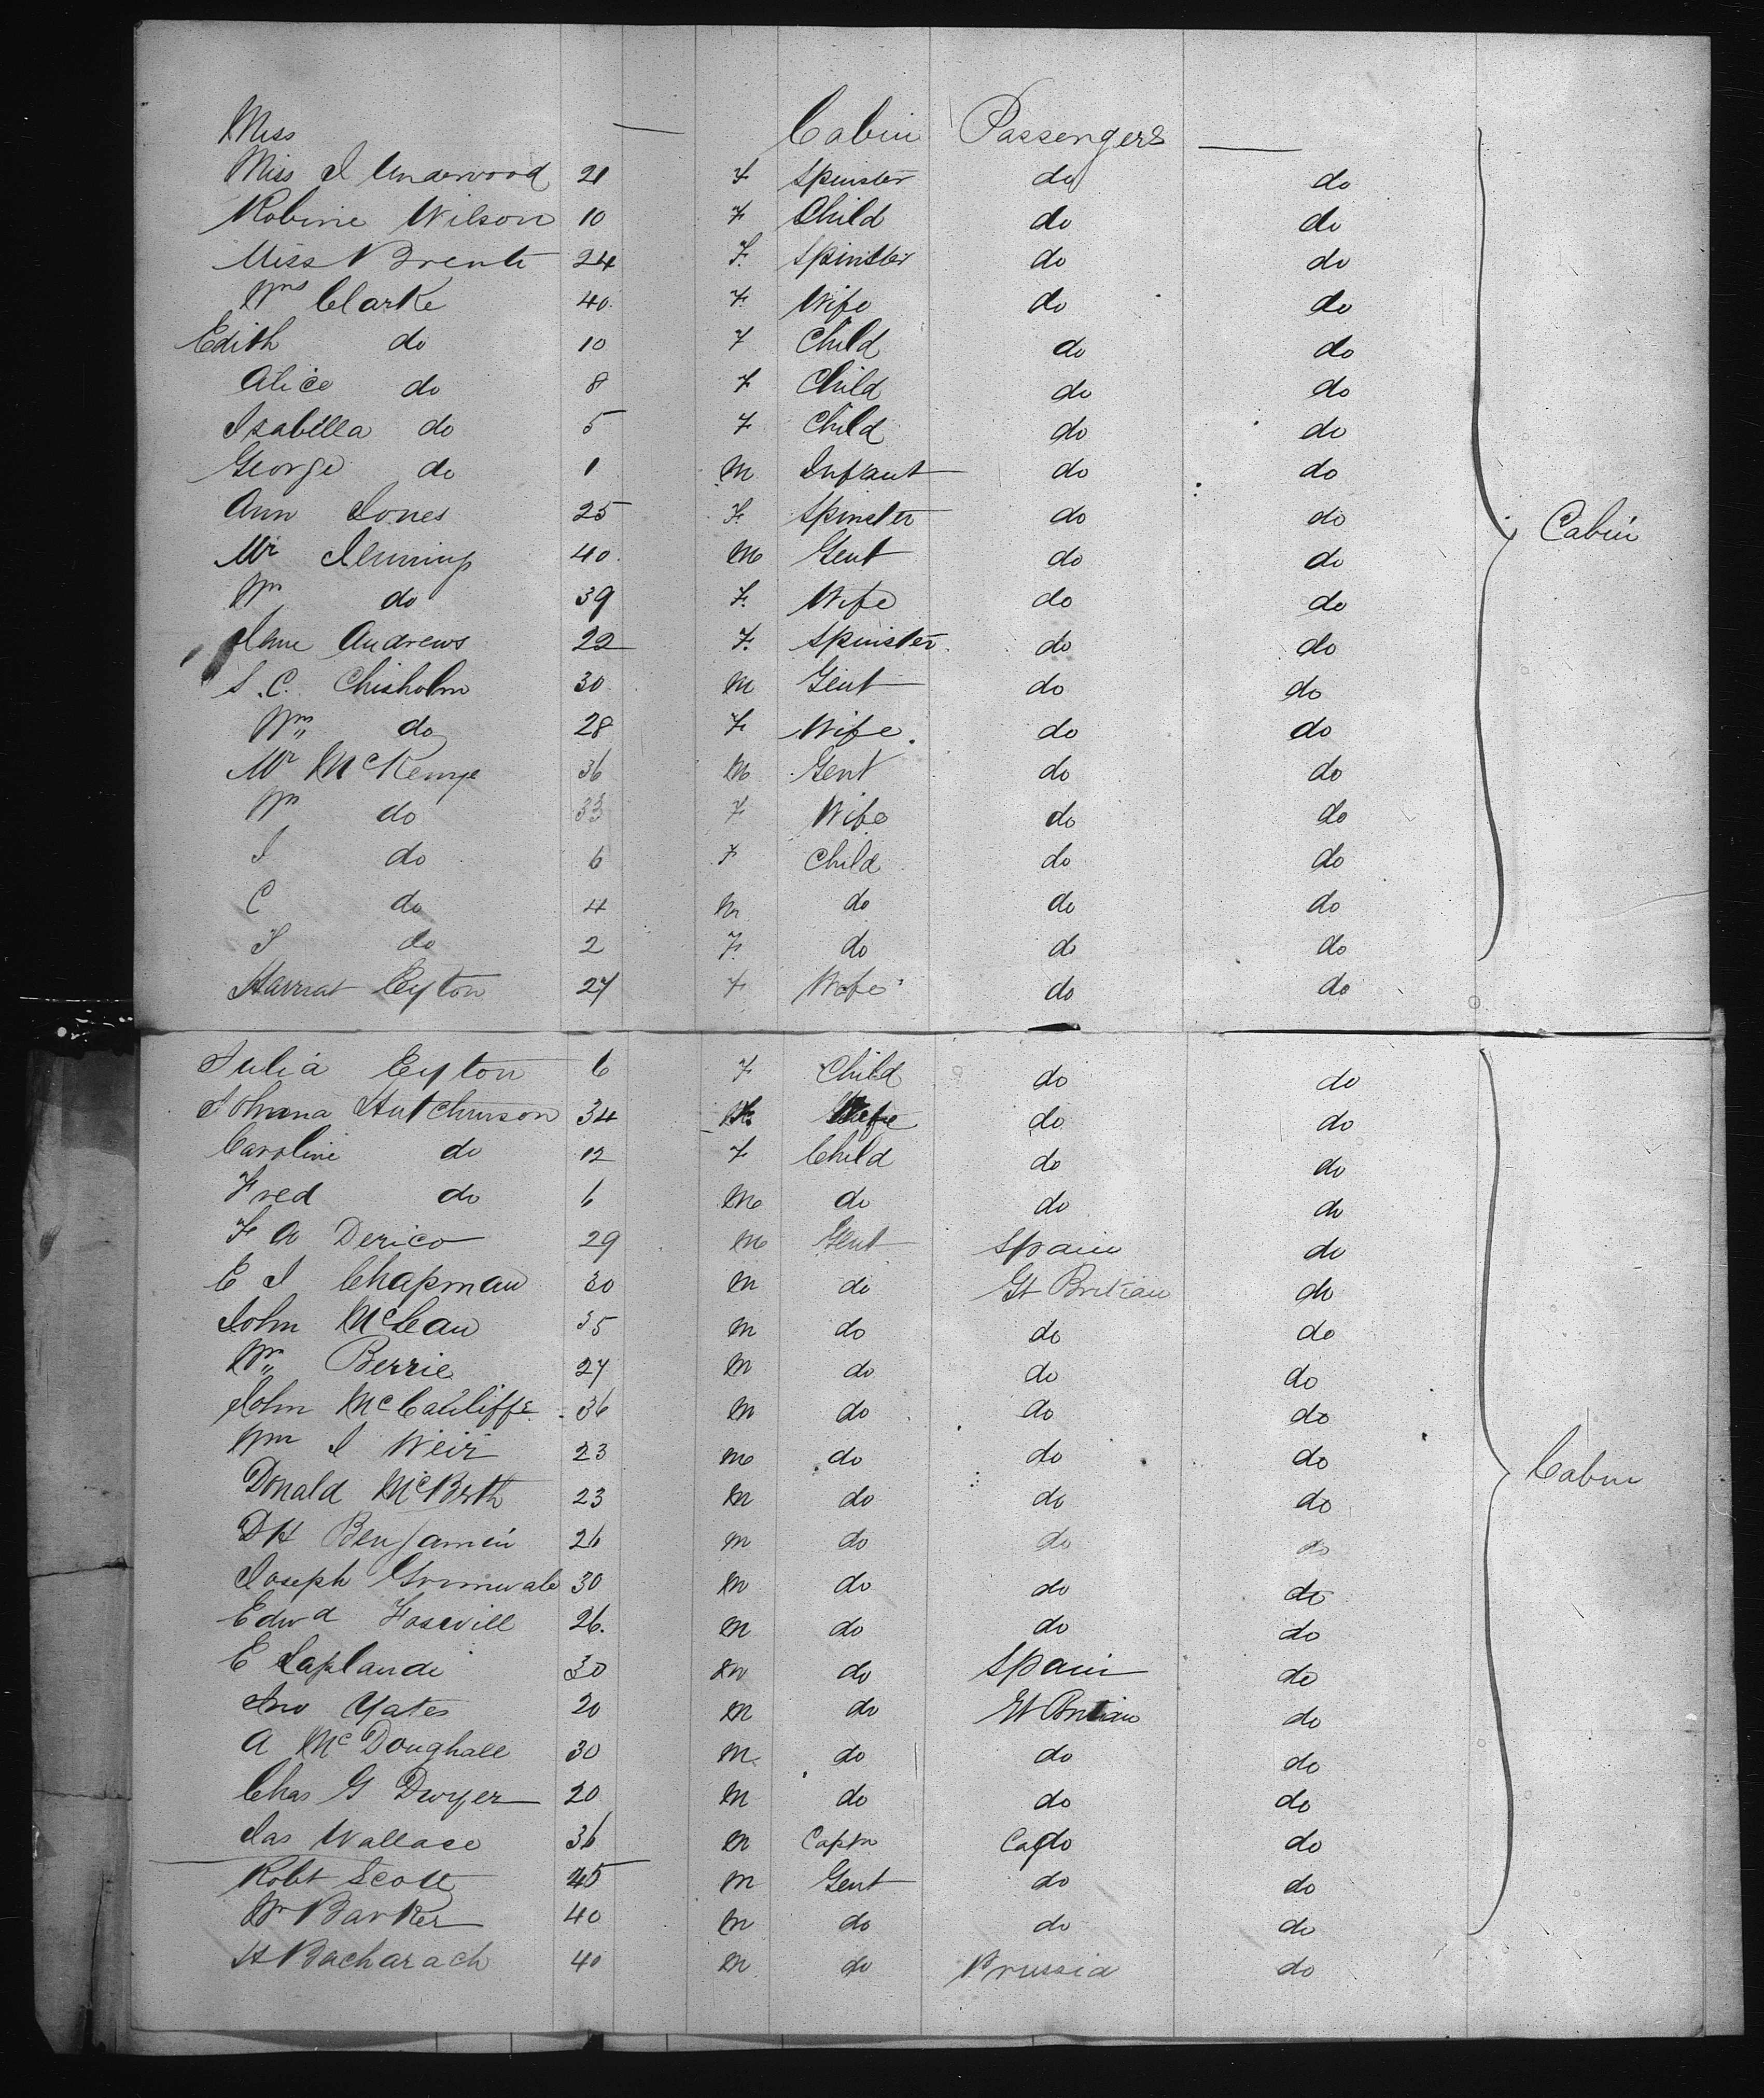 Miss — Cabin Passengers —
Miss I Underwood 21 F Spinster do do
Robine Wilson 10 F Child do do
Miss Brenti 24 F. Spinster do do
Mrs Clarke 40 F Wife do do
Edith do 10 F Child do do
Alice do 8 F Child do do
Isabella do 5 F Child do do
George do 1 M Infant do do
Ann Jones 25 F. Spinster do do
Mr 40 M Gent do do
do 39 F. Wife do do
Jane Andrews 22 F. Spinster do do
S. C. Chisholm 30 M Gent do do
do 28 F Wife do do
Mr McKenye 36 M Gent do do
do 33 F Wife do do
I do 6 F Child do do
C do 4 M do do do
do 2 F. do do do
Harriat Eyton 27 F Wife do do
Julia Eyton 6 F Child do do
Johana Hutchinson 34 F. Wife do do
Caroline do 12 F Child do do
Fred do 6 M do do do
F A Derico 29 M Gent Spain do
E J Chapman 30 M do Gt Britian do
John McLean 35 M do do do
Wm Berrie 27 M do do do
John McCauliffe 36 M do do do
Wm J Weir 23 M do do do
Donald McBeth 23 M do do do
D H Benjamin 26 M do do do
Joseph 30 M do do do
Edwd 26. M do do do
E Laplandi 30 M do Spain do
Jno Yates 20 M do Gt Britian do
A McDoughall 30 M. do do do
Chas G Dwyer 20 M do do do
Jas Wallace 36 M Captn do do
Robt Scott 45 M Gent do do
Barker 40 M do do do
H Bacharach 40 M do Prussia do
Cabin
Cabin